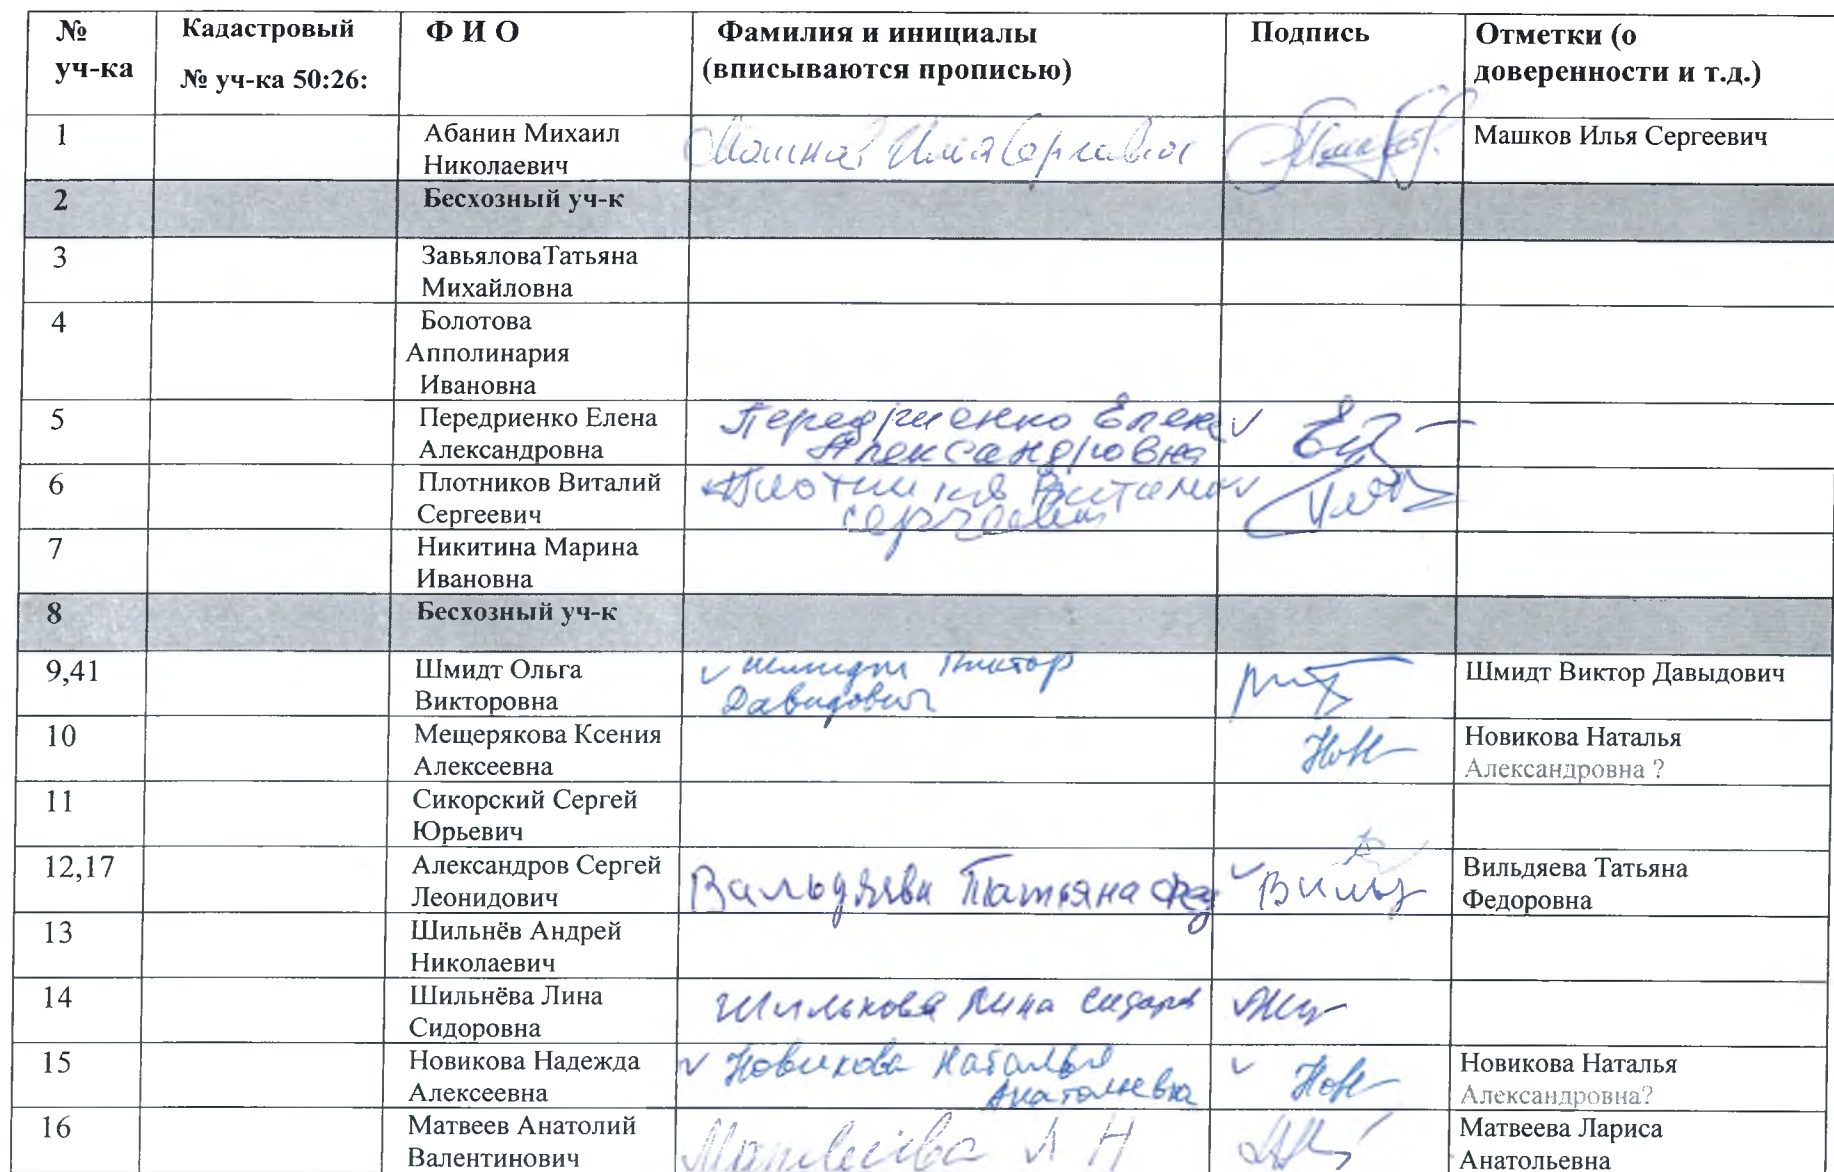 № уч-ка
Кадастровый № уч-ка 50:26:
Ф И О
Фамилия и инициалы (вписываются прописью)
Подпись
Отметки (о доверенности и т.д.)
1
Абанин Михаил
Николаевич
Машков Илья Сергеевич
Машков Илья Сергеевич
2
Бесхозный уч-к
3
ЗавьяловаТатьяна
Михайловна
4
Болотова
Апполинария
Ивановна
5
Передриенко Елена
Александровна
Передриенко Елена
Александровна
6
Плотников Виталий
Сергеевич
Плотников Виталий
Сергеевич
7
Никитина Марина
Ивановна
8
Бесхозный уч-к
9,41
Шмидт Ольга
Викторовна
Шмидт Виктор
Давидович
Шмидт Виктор Давыдович
10
Мещерякова Ксения
Алексеевна
Новикова Наталья
Александровна ?
11
Сикорский Сергей
Юрьевич
12,17
Александров Сергей
Леонидович
Вильдяева Татьяна Фед
Вильдяева Татьяна
Федоровна
13
Шильнёв Андрей
Николаевич
14
Шильнёва Лина
Сидоровна
Шильнова Лина Сидоров
15
Новикова Надежда
Алексеевна
Новикова Наталья
Анатольевна
Новикова Наталья
Александровна?
16
Матвеев Анатолий
Валентинович
Матвеева Л Н
Матвеева Лариса
Анатольевна